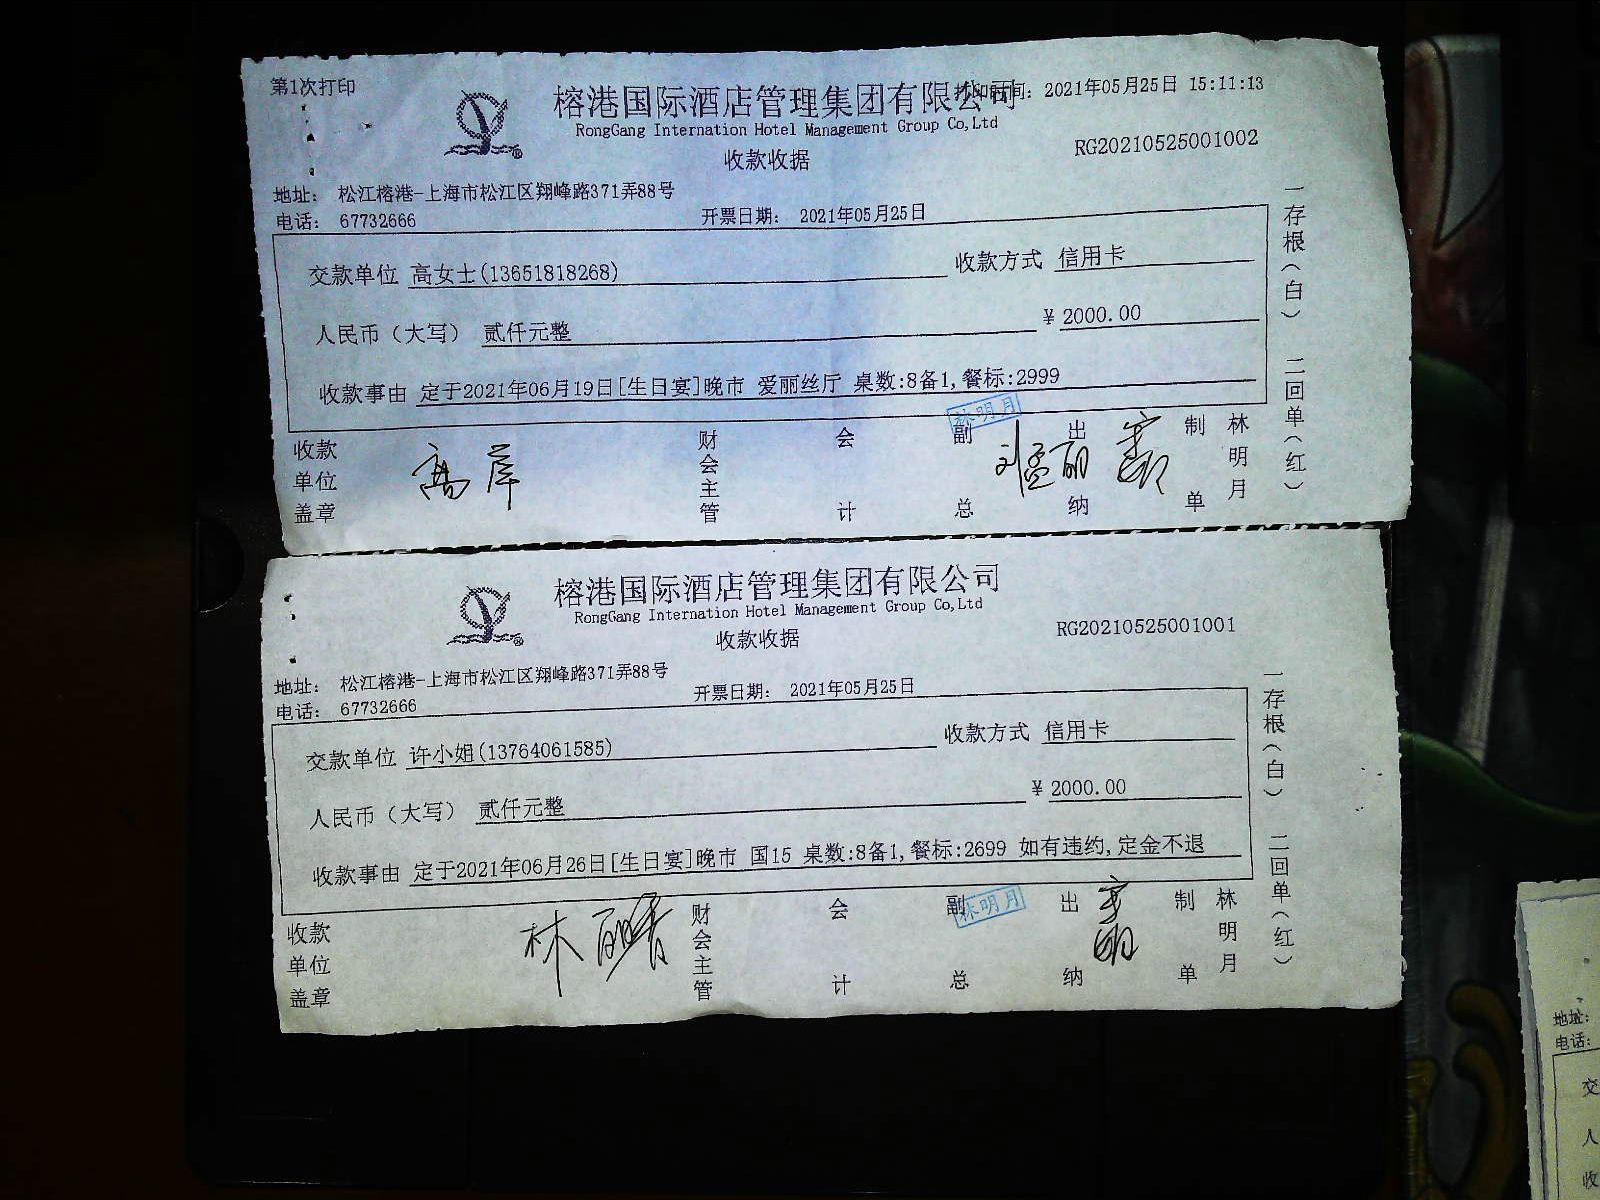 第1次打印
榕港国际酒店管理集团有限公司
打印时间: 2021年05月25日 15:11:13
RongGang Internation Hotel Management Group Co,Ltd
收款收据
RG20210525001002
地址: 松江榕港-上海市松江区翔峰路371弄88号
电话: 67732666
开票日期: 2021年05月25日
交款单位 高女士(13651818268) 收款方式 信用卡
人民币（大写） 贰仟元整 ¥ 2000.00
收款事由 定于2021年06月19日[生日宴]晚市 爱丽丝厅 桌数:8备1,餐标:2999
一存根(白) 二回单(红)
林明月
收款单位盖章 财会主管 会计 副总 出纳 制单 林明月
榕港国际酒店管理集团有限公司
RongGang Internation Hotel Management Group Co,Ltd
收款收据
RG20210525001001
地址: 松江榕港-上海市松江区翔峰路371弄88号
电话: 67732666
开票日期: 2021年05月25日
交款单位 许小姐(13764061585) 收款方式 信用卡
人民币（大写） 贰仟元整 ¥ 2000.00
收款事由 定于2021年06月26日[生日宴]晚市 国15 桌数:8备1,餐标:2699 如有违约,定金不退
一存根(白) 二回单(红)
林明月
收款单位盖章 财会主管 会计 副总 出纳 制单 林明月
地址:
电话:
交
人
收